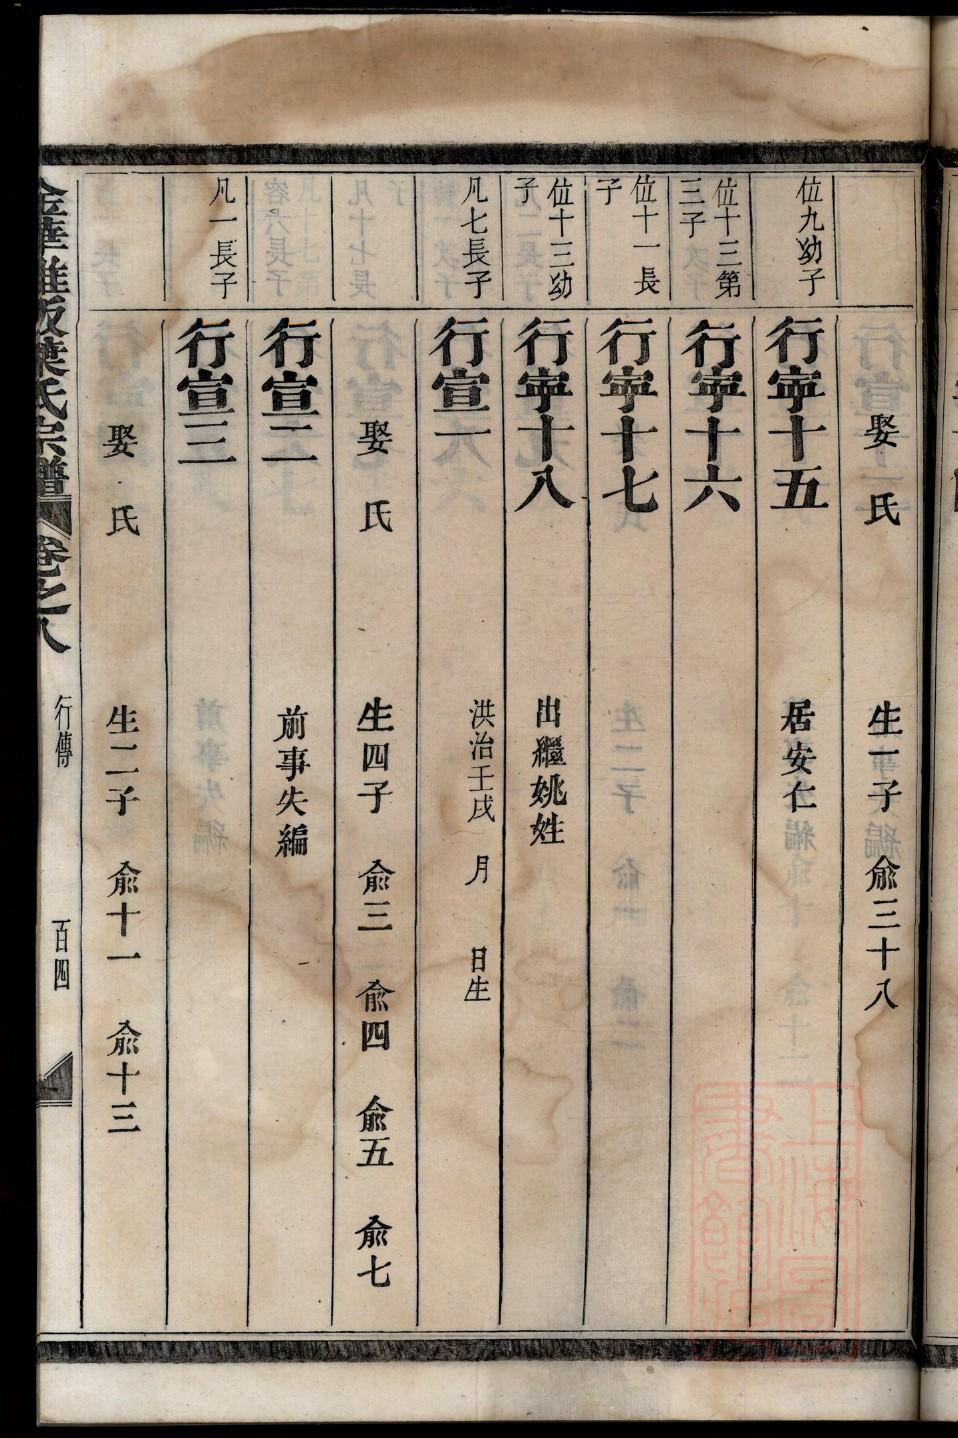 娶 氏 生一子 俞三十八
位九幼子 行寧十五 居安仁
位十三第三子 行寧十六
位十一長子 行寧十七
位十三幼子 行寧十八 出繼姚姓
凡七長子 行宣一 洪治壬戌 月 日生
娶 氏 生四子 俞三 俞四 俞五 俞七
行宣二 前事失編
凡一長子 行宣三
娶 氏 生二子 俞十一 俞十三
葉氏宗譜 卷之八 行傳 百四